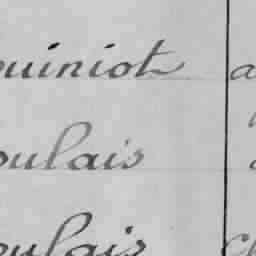 ouiniot a
oulais
oulais